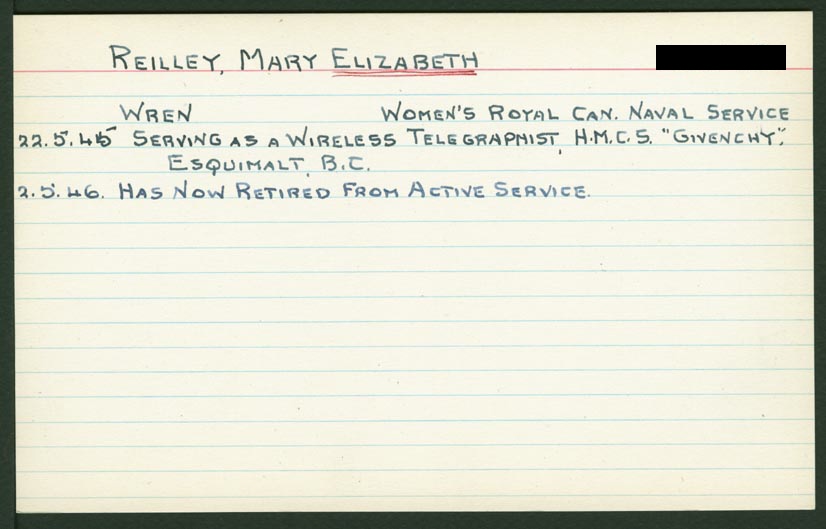 REILLEY, MARY ELIZABETH
WREN WOMEN'S ROYAL CAN. NAVAL SERVICE
22.5.45 SERVING AS A WIRELESS TELEGRAPHIST, H.M.C.S. "GIVENCHY",
ESQUIMALT, B.C.
2.5.46. HAS NOW RETIRED FROM ACTIVE SERVICE.